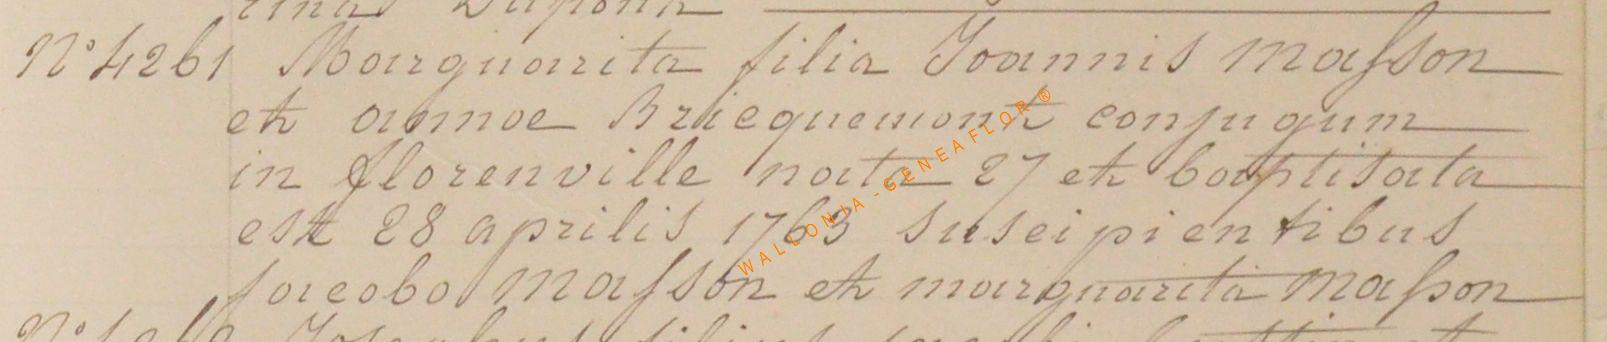 rina Dupont
N° 4261 Marguarita filia Joannis Masson
et annae Bricquemont conjugum
in florenville nata 27 et baptisata
est 28 aprilis 1763 suscipientibus
jacobo Masson et marguarita Masson
Josephus filius
WALLONIA-GENEAFLOR®